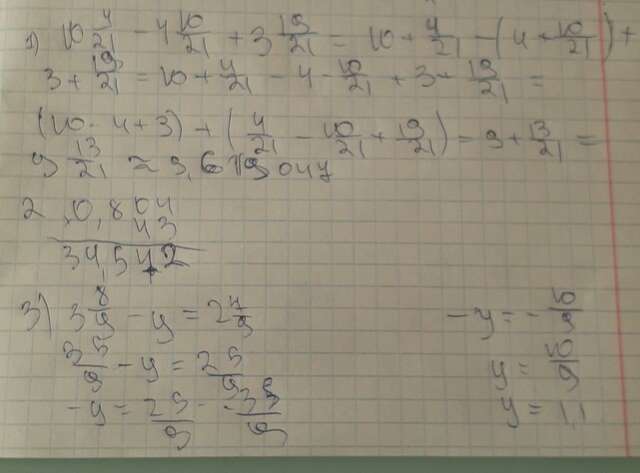 1) 10 4/21 - 4 10/21 + 3 19/21 = 10 + 4/21 - (4 + 10/21) +
3 + 19/21 = 10 + 4/21 - 4 - 10/21 + 3 + 19/21 =
(10 - 4 + 3) + (4/21 - 10/21 + 19/21) = 9 + 13/21 =
9 13/21 ≈ 9,619047
2 0,804
43
34,572
3) 3 8/9 - y = 2 7/9
35/9 - y = 25/9
-y = 25/9 - 35/9
-y = - 10/9
y = 10/9
y = 1,1